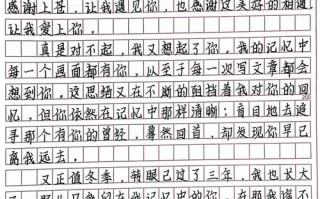 感谢上苍，让我遇见你，也感谢这美好的相遇
让我爱上你。
真是对不起，我又想起了你。我的记忆中
每一个画面都有你，以至于每一次写文章都会
想到你。这思绪又在不断的阻挡着我对你的回
忆，但你依然在记忆中那样清晰；盲目地去追
寻那个有你的曾经，蓦然回首，却发现你早已
离我远去。
又正值冬季，转眼已过了三年，我也长大